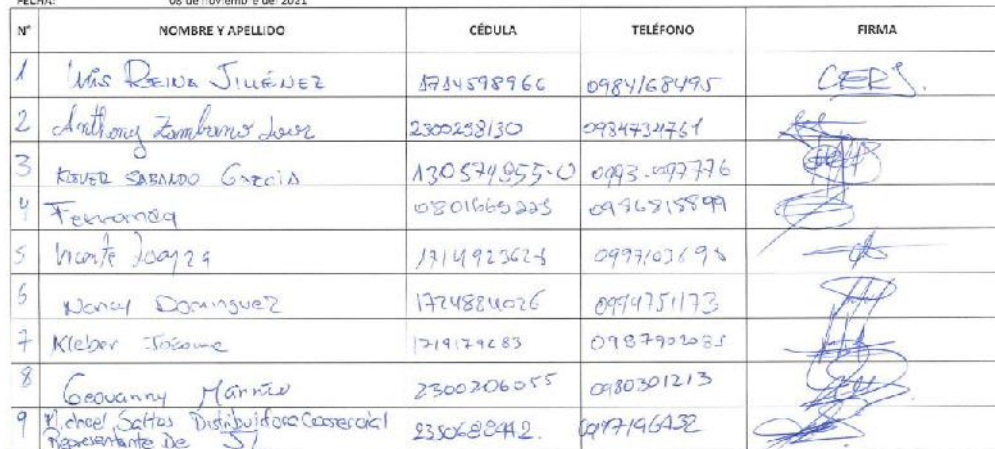 FECHA: 08 de noviembre del 2021
N° NOMBRE Y APELLIDO CÉDULA TELÉFONO FIRMA
1 Luis REINA JIMÉNEZ 1714598966 0984168495 CERJ.
2 Anthony Zambrano 2300238130 0984734761
3 KLEVER SABANDO GARCIA 130574955-0 0993-097776
4 Fernanda 0801665223 0986815899
5 Vicente Loayza 1714923628 0997103698
6 Nancy Dominguez 1724884026 0994751173
7 Kleber Jácome 1719179683
8 Geovanny 2300206055 0980301213
9 Michael Saltos Distribuidora Comercial
Representante De JJ 0977196432